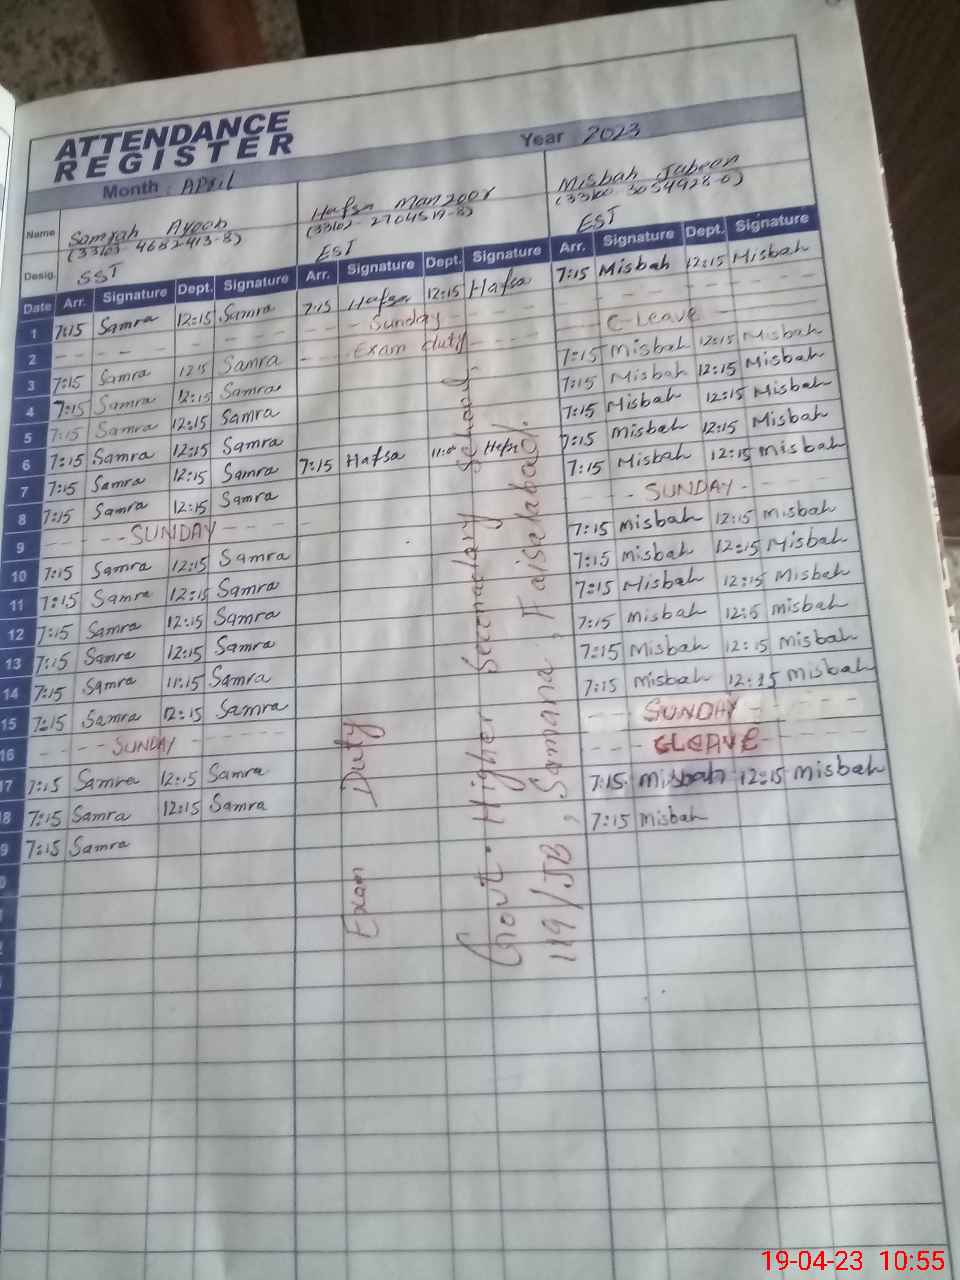 ATTENDANCE
REGISTER
Year 2023
Month : APril
Name Samrah Ayoob Hafsa Manzoor Misbah Jabeen
(33102-2704519-8) (33100-3054928-0)
Desig. SST EST EST
Date Arr. Signature Dept. Signature Arr. Signature Dept. Signature Arr. Signature Dept. Signature
1 7:15 Samra 12:15 Samra 7:15 Hafsa 12:15 Hafsa 7:15 Misbah 12:15 Misbah
2 - - - - - - Sunday - - - - - -
3 7:15 Samra 12:15 Samra - Exam duty - - - C-Leave -
4 7:15 Samra 12:15 Samra 7:15 Misbah 12:15 Misbah
5 7:15 Samra 12:15 Samra 7:15 Misbah 12:15 Misbah
6 7:15 Samra 12:15 Samra 7:15 Misbah 12:15 Misbah
7 7:15 Samra 12:15 Samra 7:15 Hafsa 11:00 Hafsa 7:15 Misbah 12:15 Misbah
8 7:15 Samra 12:15 Samra 7:15 Misbah 12:15 misbah
9 - - - - SUNDAY - - - - - SUNDAY -
10 7:15 Samra 12:15 Samra 7:15 misbah 12:15 misbah
11 7:15 Samra 12:15 Samra 7:15 misbah 12:15 Misbah
12 7:15 Samra 12:15 Samra 7:15 Misbah 12:15 Misbah
13 7:15 Samra 12:15 Samra 7:15 Misbah 12:15 misbah
14 7:15 Samra 11:15 Samra 7:15 Misbah 12:15 misbah
15 7:15 Samra 12:15 Samra 7:15 Misbah 12:15 misbah
16 - - - - SUNDAY - - - - - - SUNDAY - - -
17 7:15 Samra 12:15 Samra - - - CLEAVE - -
18 7:15 Samra 12:15 Samra 7:15 misbah 12:15 misbah
19 7:15 Samra 7:15 misbah
Exam Duty
Govt. Higher Secondary School,
119/JB, Samana, Faisalabad.
19-04-23 10:55